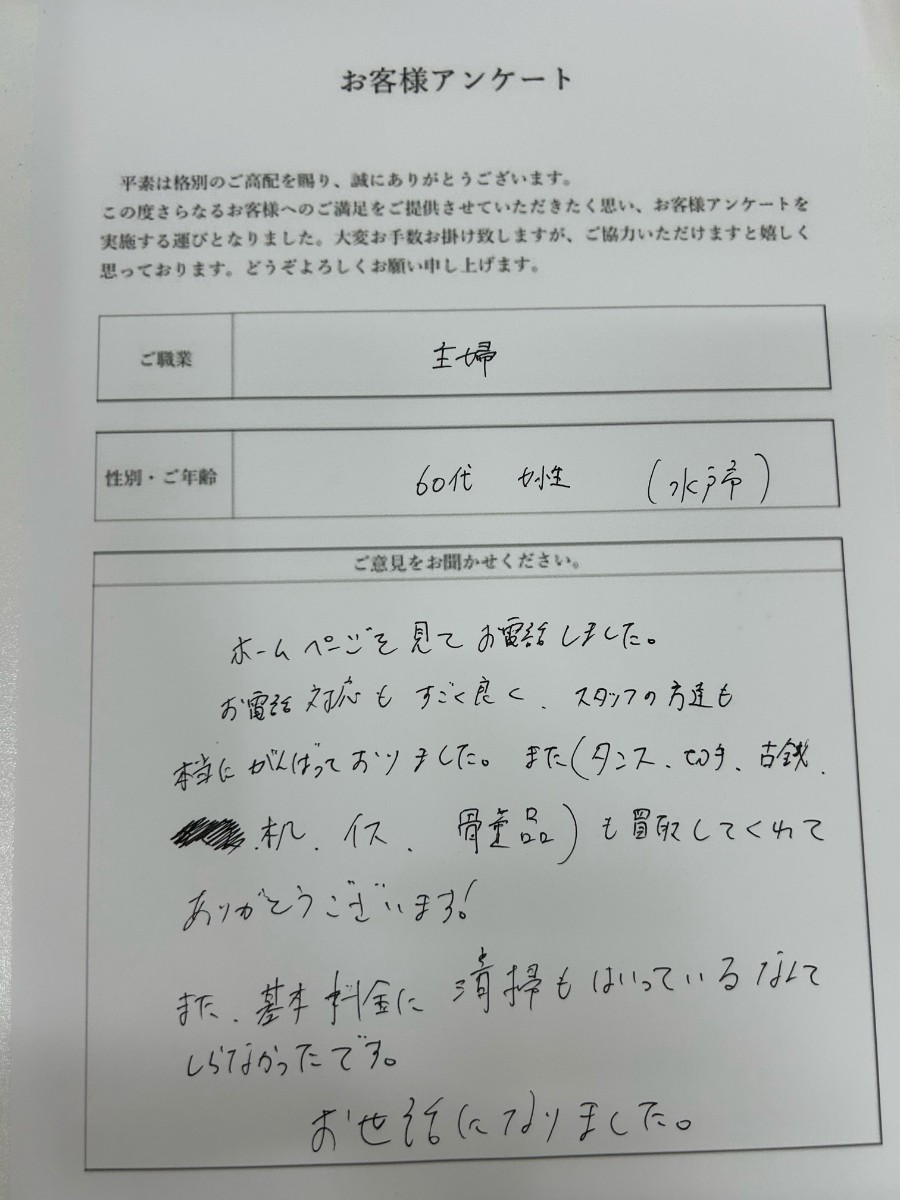 お客様アンケート
平素は格別のご高配を賜り、誠にありがとうございます。
この度さらなるお客様へのご満足をご提供させていただきたく思い、お客様アンケートを
実施する運びとなりました。大変お手数お掛け致しますが、ご協力いただけますと嬉しく
思っております。どうぞよろしくお願い申し上げます。
ご職業
主婦
性別・ご年齢
60代 女性 (水戸市)
ご意見をお聞かせください。
ホームページを見てお電話しました。
お電話対応もすごく良く、スタッフの方達も
本当にがんばっておりました。また(タンス、切手、古銭、
机、イス、骨董品)も買取してくれて
ありがとうございます!
また、基本料金に清掃もはいっているなんて
しらなかったです。
お世話になりました。